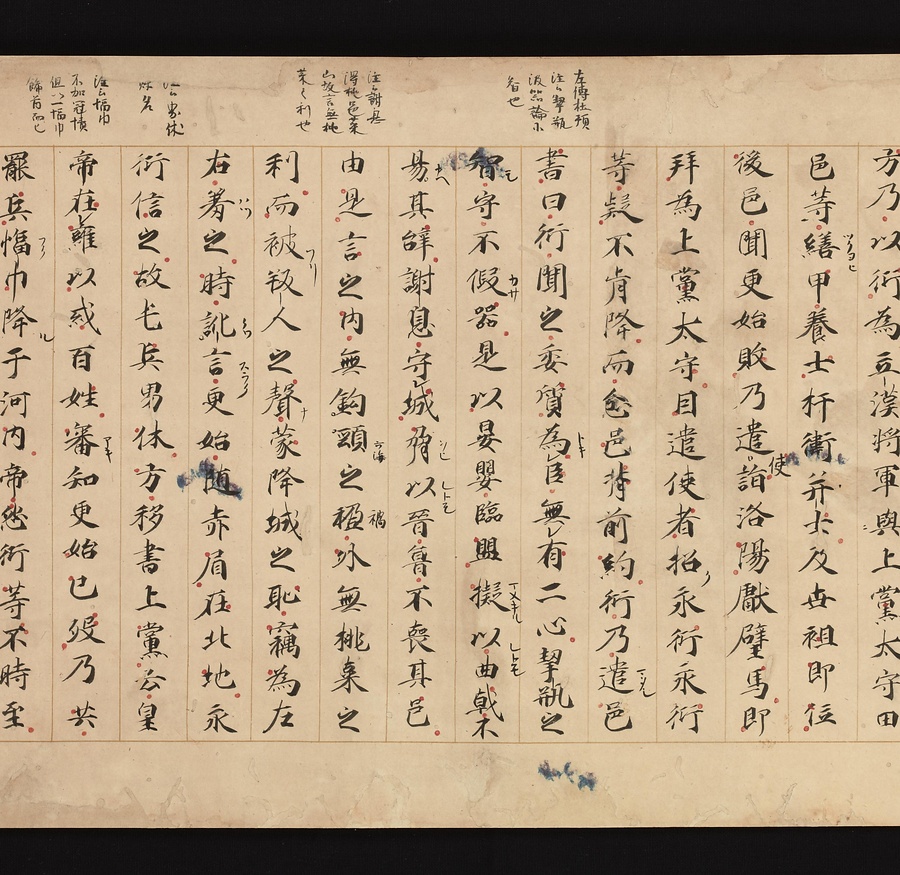 左傳杜預
注曰挈瓶
汲器喻小
智也
注曰謝息
得桃邑萊
山故言無桃
萊之利也
縣名
注曰幅巾
不加冠幘
但以一幅巾
飾首而已
方乃以衍為立漢將軍與上黨太守田
邑等繕甲養士杆衛并土及世祖即位
後邑聞更始敗乃遣使詣洛陽獻璧馬即
拜為上黨太守因遣使者招永衍永衍
等疑不肯降而忿邑背前約衍乃遣邑
書曰衍聞之委質為臣無有二心挈瓶之
智守不假器是以晏嬰臨盟擬以曲戟不
易其辭謝息守城脅以晉魯不喪其邑
由是言之内無鈎頸之禍外無桃棗之
利而被叛人之聲蒙降城之恥竊為左
右羞之時訛言更始随赤眉在北地永
衍信之故屯兵界休方移書上黨云皇
帝在雍以惑百姓審知更始已歿乃共
罷兵幅巾降于河内帝怨衍等不時至